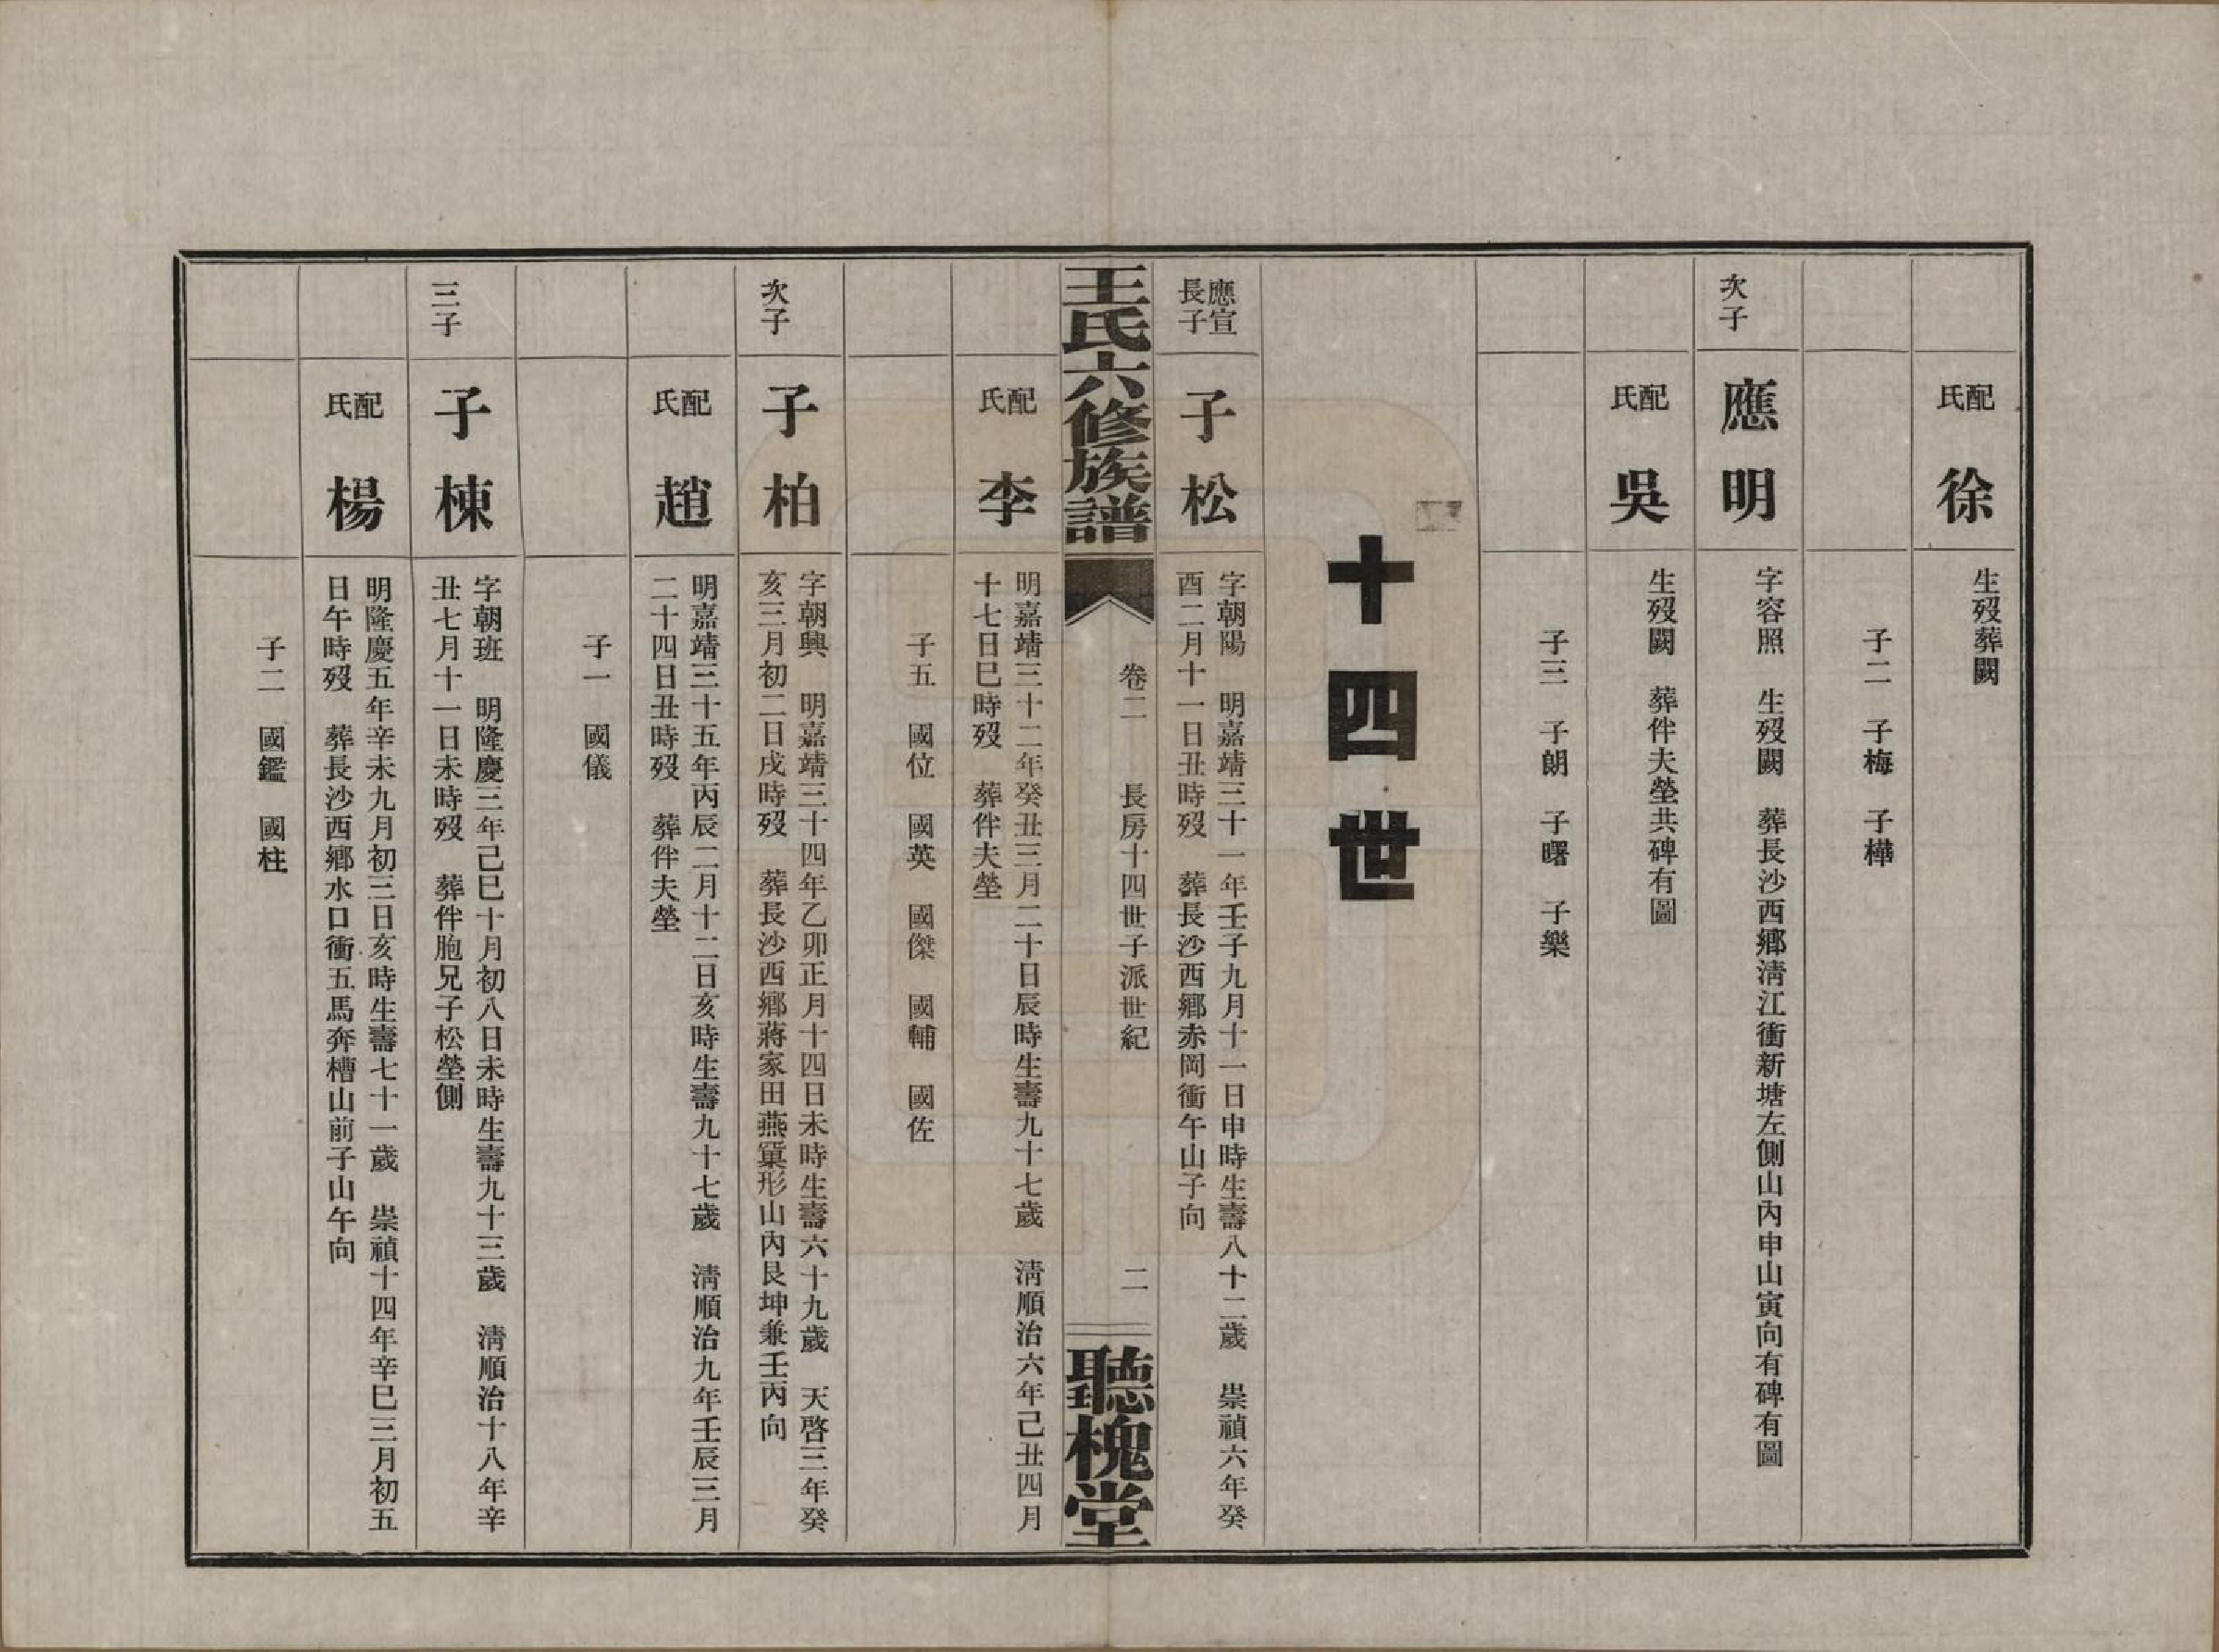 配氏 徐
生歿葬闕
子二 子梅 子樺
次子
應明
字容照 生歿闕 葬長沙西鄉淸江衝新塘左側山內申山寅向有碑有圖
配氏 吳
生歿闕 葬伴夫塋共碑有圖
子三 子朗 子曙 子樂
十四世
應宣
長子
子松
字朝陽 明嘉靖三十一年壬子九月十一日申時生壽八十二歲 崇禎六年癸
酉二月十一日丑時歿 葬長沙西鄉赤岡衝午山子向
王氏六修族譜
卷二 長房十四世子派世紀
二
聽槐堂
配氏 李
明嘉靖三十二年癸丑三月二十日辰時生壽九十七歲 淸順治六年己丑四月
十七日巳時歿 葬伴夫塋
子五 國位 國英 國傑 國輔 國佐
次子
子柏
字朝興 明嘉靖三十四年乙卯正月十四日未時生壽六十九歲 天啓三年癸
亥三月初二日戌時歿 葬長沙西鄉蔣家田燕窠形山內艮坤兼壬丙向
配氏 趙
明嘉靖三十五年丙辰二月十二日亥時生壽九十七歲 淸順治九年壬辰三月
二十四日丑時歿 葬伴夫塋
子一 國儀
三子
子棟
字朝班 明隆慶三年己巳十月初八日未時生壽九十三歲 淸順治十八年辛
丑七月十一日未時歿 葬伴胞兄子松塋側
配氏 楊
明隆慶五年辛未九月初三日亥時生壽七十一歲 崇禎十四年辛巳三月初五
日午時歿 葬長沙西鄉水口衝五馬奔槽山前子山午向
子二 國鑑 國柱